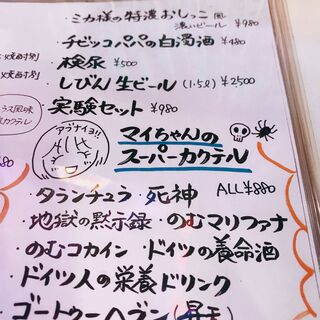 ・ミカ様の特濃おしっこ風 濃いビール ¥980
・チビッコパパの白濁酒 ¥480
・検尿 ¥500
・しびん生ビール (1.5ℓ) ¥2500
・実験セット ¥980
アブナイヨ!!
マイちゃんの
スーパーカクテル
・タランチュラ・死神 ALL¥880
・地獄の黙示録・のむマリファナ
・のむコカイン・ドイツの養命酒
・ドイツ人の栄養ドリンク
・ゴートゥーヘブン(昇天)